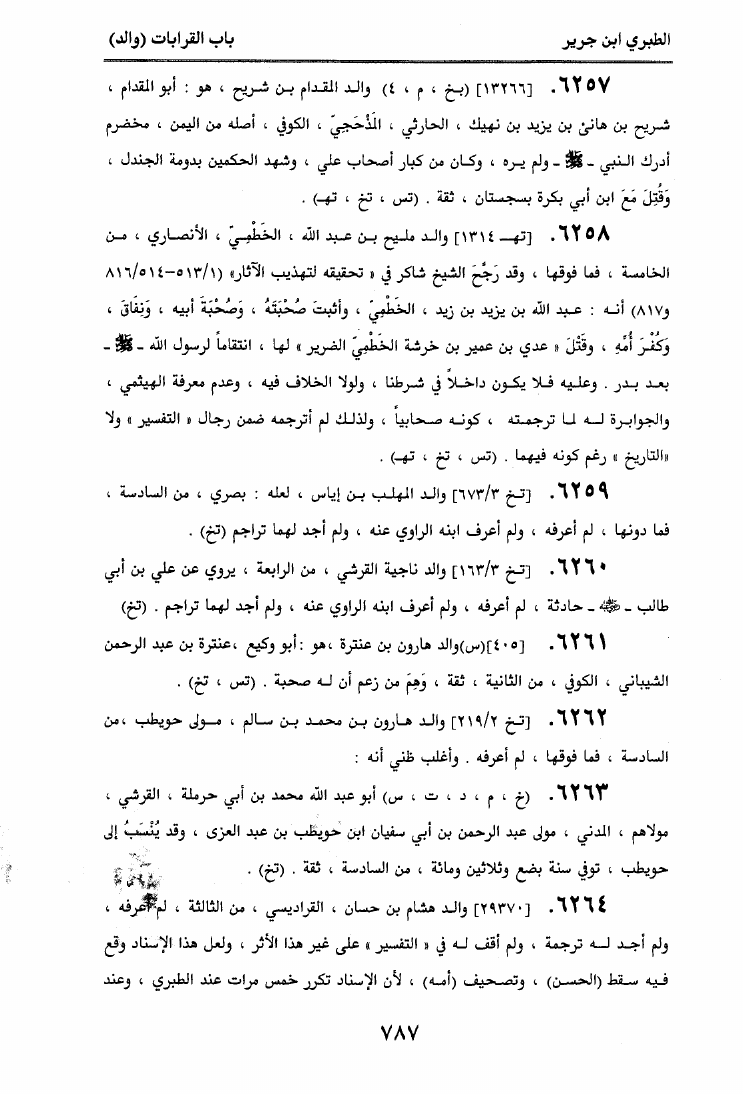 الطبري ابن جرير
باب القرابات (والد)
٦٢٥٧. [١٣٢٦٦] (بخ ، م ، ٤) والد المقدام بن شريح ، هو : أبو المقدام ،
شريح بن هانئ بن يزيد بن نهيك ، الحارثي ، المَذْحَجيّ ، الكوفي ، أصله من اليمن ، مخضرم
أدرك النبي ـ ﷺ ـ ولم يره ، وكان من كبار أصحاب علي ، وشهد الحكمين بدومة الجندل ،
وَقُتِلَ مَعَ ابن أبي بكرة بسجستان ، ثقة . (تس ، تخ ، تهـ) .
٦٢٥٨. [تهـ ١٣١٤] والد مليح بن عبد الله ، الخَطْمِيّ ، الأنصاري ، من
الخامسة ، فما فوقها ، وقد رَجَّحَ الشيخ شاكر في « تحقيقه لتهذيب الآثار» (٥١٣/١–٨١٦/٥١٤
و٨١٧) أنه : عبد الله بن يزيد بن زيد ، الخَطْمِيّ ، وأثبتَ صُحْبَتَهُ ، وَصُحْبَةَ أبيه ، وَنِفَاقَ ،
وَكُفْرَ أُمِّهِ ، وقَتْلَ « عدي بن عمير بن خرشة الخَطْمِيّ الضرير » لها ، انتقاماً لرسول الله ـ ﷺ ـ
بعد بدر . وعليه فلا يكون داخلاً في شرطنا ، ولولا الخلاف فيه ، وعدم معرفة الهيثمي ،
والجوابرة له لما ترجمته ، كونه صحابياً ، ولذلك لم أترجمه ضمن رجال « التفسير » ولا
«التاريخ » رغم كونه فيهما . (تس ، تخ ، تهـ) .
٦٢٥٩. [تخ ٦٧٣/٣] والد المهلب بن إياس ، لعله : بصري ، من السادسة ،
فما دونها ، لم أعرفه ، ولم أعرف ابنه الراوي عنه ، ولم أجد لهما تراجم (تخ) .
٦٢٦٠. [تخ ١٦٣/٣] والد ناجية القرشي ، من الرابعة ، يروي عن علي بن أبي
طالب ـ ﵁ ـ حادثة ، لم أعرفه ، ولم أعرف ابنه الراوي عنه ، ولم أجد لهما تراجم . (تخ)
٦٢٦١. [٤٠٥](س)والد هارون بن عنترة ،هو :أبو وكيع ،عنترة بن عبد الرحمن
الشيباني ، الكوفي ، من الثانية ، ثقة ، وَهِمَ من زعم أن له صحبة . (تس ، تخ) .
٦٢٦٢. [تخ ٢١٩/٢] والد هارون بن محمد بن سالم ، مولى حويطب ،من
السادسة ، فما فوقها ، لم أعرفه . وأغلب ظني أنه :
٦٢٦٣. (خ ، م ، د ، ت ، س) أبو عبد الله محمد بن أبي حرملة ، القرشي ،
مولاهم ، المدني ، مولى عبد الرحمن بن أبي سفيان ابن حويطب بن عبد العزى ، وقد يُنْسَبُ إلى
حويطب ، توفي سنة بضع وثلاثين ومائة ، من السادسة ، ثقة . (تخ) .
٦٢٦٤. [٢٩٣٧٠] والد هشام بن حسان ، القراديسي ، من الثالثة ، لم أعرفه ،
ولم أجد له ترجمة ، ولم أقف له في « التفسير » على غير هذا الأثر ، ولعل هذا الإسناد وقع
فيه سقط (الحسن) ، وتصحيف (أمه) ، لأن الإسناد تكرر خمس مرات عند الطبري ، وعند
٧٨٧